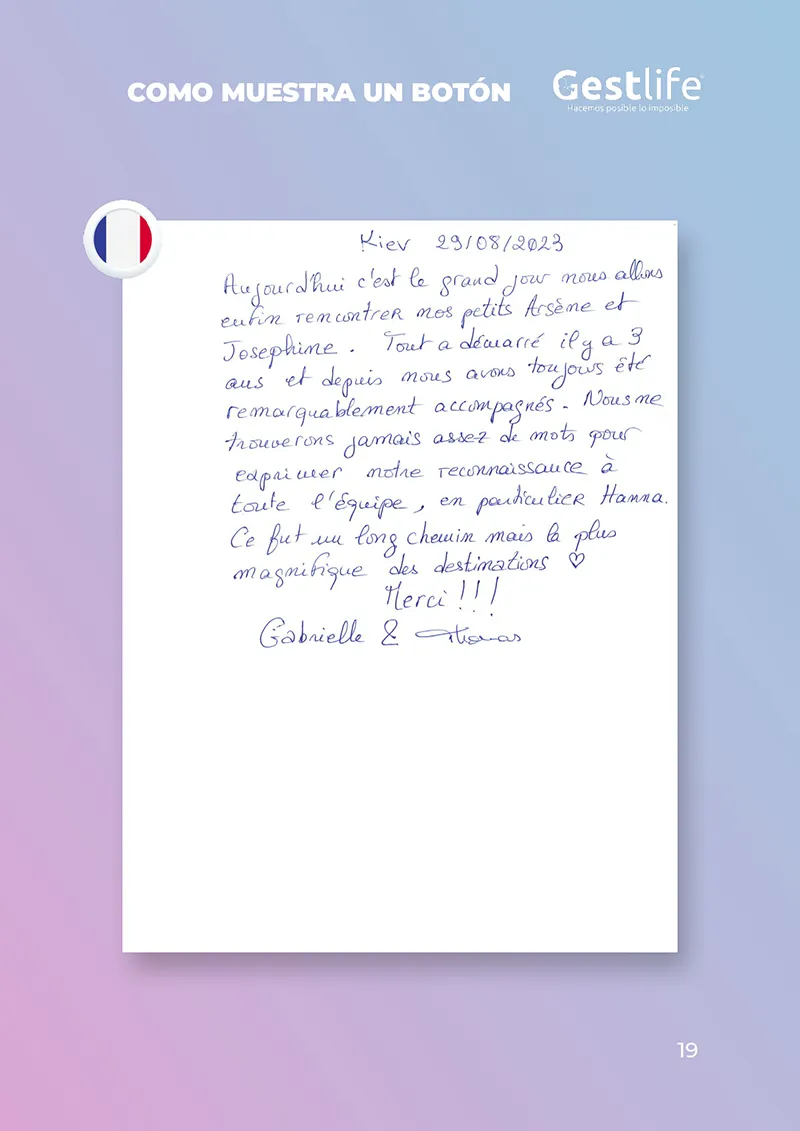 COMO MUESTRA UN BOTÓN
Gestlife
Hacemos posible lo imposible
Kiev 29/08/2023
Aujourd'hui c'est le grand jour nous allons
enfin rencontrer nos petits Arsène et
Josephine. Tout a démarré il y a 3
ans et depuis nous avons toujours été
remarquablement accompagnés. Nous ne
trouverons jamais assez de mots pour
exprimer notre reconnaissance à
toute l'équipe, en particulier Hanna.
Ce fut un long chemin mais la plus
magnifique des destinations ♡
Merci !!!
Gabrielle & Thomas
19